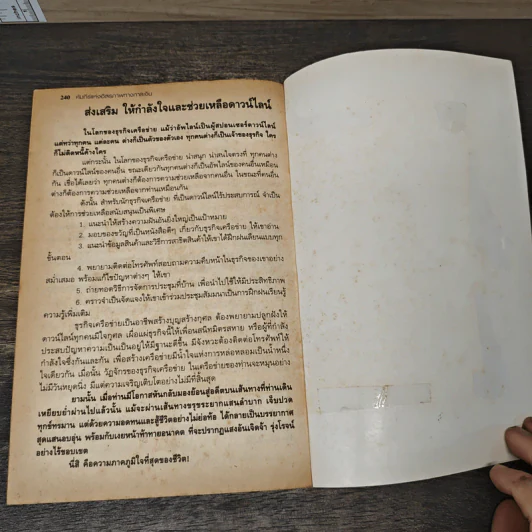 240 คัมภีร์แห่งอิสรภาพทางการเงิน
ส่งเสริม ให้กำลังใจและช่วยเหลือดาวน์ไลน์
ในโลกของธุรกิจเครือข่าย แม้ว่าอัพไลน์เป็นผู้สปอนเซอร์ดาวน์ไลน์
แต่ทว่าทุกคน แต่ละคน ต่างก็เป็นตัวของตัวเอง ทุกคนต่างก็เป็นเจ้าของธุรกิจ ใคร
ก็ไม่ติดหนี้ค้างใคร
แต่กระนั้น ในโลกของธุรกิจเครือข่าย น่าสนุก น่าสนใจตรงที่ ทุกคนต่าง
ก็เป็นดาวน์ไลน์ของคนอื่น ขณะเดียวกันทุกคนต่างก็เป็นอัพไลน์ของคนอื่นเหมือน
กัน เชื่อได้เลยว่า ทุกคนต่างก็ต้องการความช่วยเหลือจากคนอื่น ในขณะที่คนอื่น
ต่างก็ต้องการความช่วยเหลือจากท่านเหมือนกัน
ดังนั้น สำหรับนักธุรกิจเครือข่าย ที่เป็นดาวน์ไลน์ไร้ประสบการณ์ จำเป็น
ต้องให้การช่วยเหลือสนับสนุนเป็นพิเศษ
1. แนะนำให้สร้างความฝันอันยิ่งใหญ่เป็นเป้าหมาย
2. มอบของขวัญที่เป็นหนังสือดีๆ เกี่ยวกับธุรกิจเครือข่าย ให้เขาอ่าน
3. แนะนำข้อมูลสินค้าและวิธีการสาธิตสินค้าให้เขาได้ฝึกฝนเลียนแบบทุก
ขั้นตอน
4. พยายามติดต่อโทรศัพท์สอบถามความคืบหน้าในธุรกิจของเขาอย่าง
สม่ำเสมอ พร้อมแก้ไขปัญหาต่างๆ ให้เขา
5. ถ่ายทอดวิธีการจัดการประชุมที่บ้าน เพื่อนำไปใช้ให้มีประสิทธิภาพ
6. คราวจำเป็นจัดแจงให้เขาเข้าร่วมประชุมสัมมนาเป็นการฝึกฝนเรียนรู้
ความรู้เพิ่มเติม
ธุรกิจเครือข่ายเป็นอาชีพสร้างบุญสร้างกุศล ต้องพยายามปลูกฝังให้
ดาวน์ไลน์ทุกคนมีใจกุศล เผื่อแผ่ธุรกิจนี้ให้เพื่อนสนิทมิตรสหาย หรือผู้ที่กำลัง
ประสบปัญหาความเป็นเป็นอยู่ให้มีฐานะดีขึ้น มีจังหวะต้องติดต่อโทรศัพท์ให้
กำลังใจซึ่งกันและกัน เพื่อสร้างเครือข่ายมีน้ำใจแห่งการหล่อหลอมเป็นน้ำหนึ่ง
ใจเดียวกัน เมื่อนั้น วัฏจักรของธุรกิจเครือข่าย ในเครือข่ายของท่านจะหมุนอย่าง
ไม่มีวันหยุดนิ่ง มีแต่ความเจริญเติบโตอย่างไม่มีที่สิ้นสุด
ยามนั้น เมื่อท่านมีโอกาสหันกลับมองย้อนสู่อดีตบนเส้นทางที่ท่านเดิน
เหยียบย่ำผ่านไปแล้วนั้น แม้จะผ่านเส้นทางขรุขระยากแสนลำบาก เจ็บปวด
ทุกข์ทรมาน แต่ด้วยความอดทนและสู้ชีวิตอย่างไม่ย่อท้อ ได้กลายเป็นบรรยากาศ
สุดแสนอบอุ่น พร้อมกับเงยหน้าท้าทายอนาคต ที่จะปรากฏแสงอันเจิดจ้า รุ่งโรจน์
อย่างไร้ขอบเขต
นี่สิ คือความภาคภูมิใจที่สุดของชีวิต!